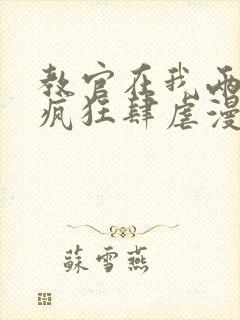 教官在我两
疯狂肆虐漫
蘇雪燕